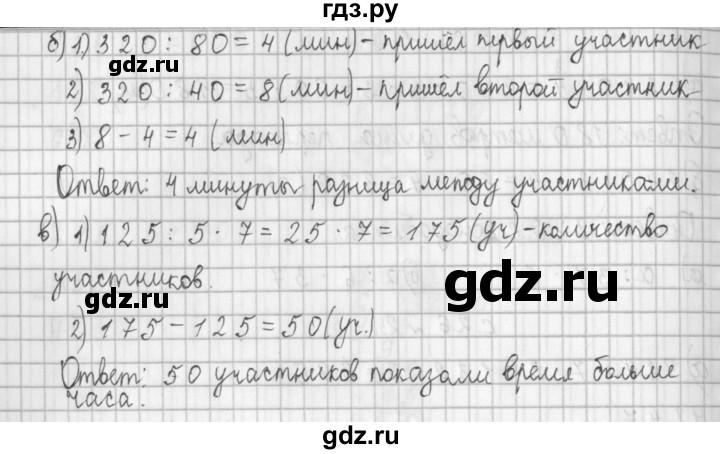 гдз.ру
б) 1) 320 : 80 = 4 (мин) - пришёл первый участник
gdz.ru
2) 320 : 40 = 8 (мин) - пришёл второй участник
3) 8 - 4 = 4 (мин)
Ответ: 4 минуты разница между участниками.
в) 1) 125 : 5 · 7 = 25 · 7 = 175 (уч) - количество
участников.
gdz.ru
gdz.ru
2) 175 - 125 = 50 (уч.)
Ответ: 50 участников показали время больше
часа.
gdz.ru